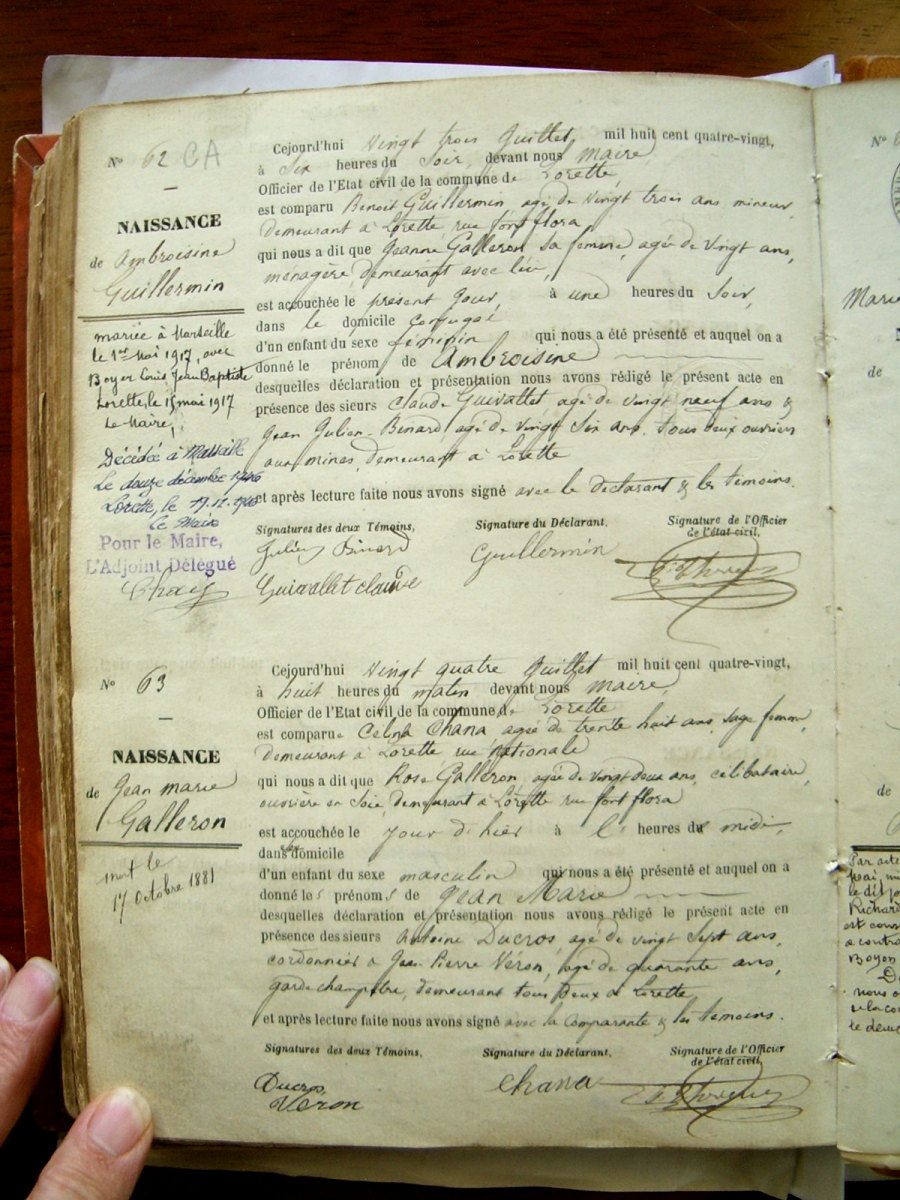 N° 62 CA
NAISSANCE
de Ambroisine
Guillermin
mariée à Marseille
le 1er Mai 1917, avec
Boyer Louis Jean Baptiste
Lorette, le 15 mai 1917
Le Maire,
Décédée à Marseille
Le douze décembre 1946
Lorette, le 19.12.1946
le Maire
Pour le Maire,
L'Adjoint Délégué
Cejourd'hui Vingt trois Juillet, mil huit cent quatre-vingt,
à Six heures du Soir, devant nous Maire,
Officier de l'Etat civil de la commune de Lorette,
est comparu Benoit Guillermin, agé de Vingt trois ans mineur,
demeurant à Lorette, rue font flora
qui nous a dit que Jeanne Galleron, sa femme, agée de vingt ans,
ménagère, demeurant avec lui,
est accouchée le présent jour, à une heures du Soir,
dans le domicile conjugal
d'un enfant du sexe féminin qui nous a été présenté et auquel on a
donné le prénom de Ambroisine
desquelles déclaration et présentation nous avons rédigé le présent acte en
présence des sieurs Claude Guivallet, agé de vingt neuf ans &
Jean Julien Binard agé de Vingt Six ans, tous deux ouvriers
aux mines, demeurant à Lorette
et après lecture faite nous avons signé avec le déclarant & les témoins.
Signatures des deux Témoins, Signature du Déclarant, Signature de l'Officier
de l'état civil,
Julien Binard Guillermin
Guivallat claude
N° 63
NAISSANCE
de Jean marie
Galleron
mort le
17 Octobre 1881
Cejourd'hui Vingt quatre Juillet mil huit cent quatre-vingt,
à huit heures du matin devant nous Maire,
Officier de l'Etat civil de la commune de Lorette
est comparue Celina Chana agée de trente huit ans, sage femme,
demeurant à Lorette rue Nationale
qui nous a dit que Rose Galleron, agée de vingt deux ans, célibataire,
ouvrière en Soie, demeurant à Lorette rue font flora
est accouchée le jour d'hier à heures de midi,
dans domicile
d'un enfant du sexe masculin qui nous a été présenté et auquel on a
donné les prénoms de Jean Marie
desquelles déclaration et présentation nous avons rédigé le présent acte en
présence des sieurs Antoine Ducros agé de vingt Sept ans,
cordonnier & Jean Pierre Véron, agé de quarante ans,
garde champêtre, demeurant tous deux à Lorette
et après lecture faite nous avons signé avec la Comparante & les témoins.
Signatures des deux Témoins, Signature du Déclarant, Signature de l'Officier
de l'état civil,
Ducros Chana
Véron
N°
Marie
de
de
Par acte
le dit
Richard
est
a
Boyon
nous
le